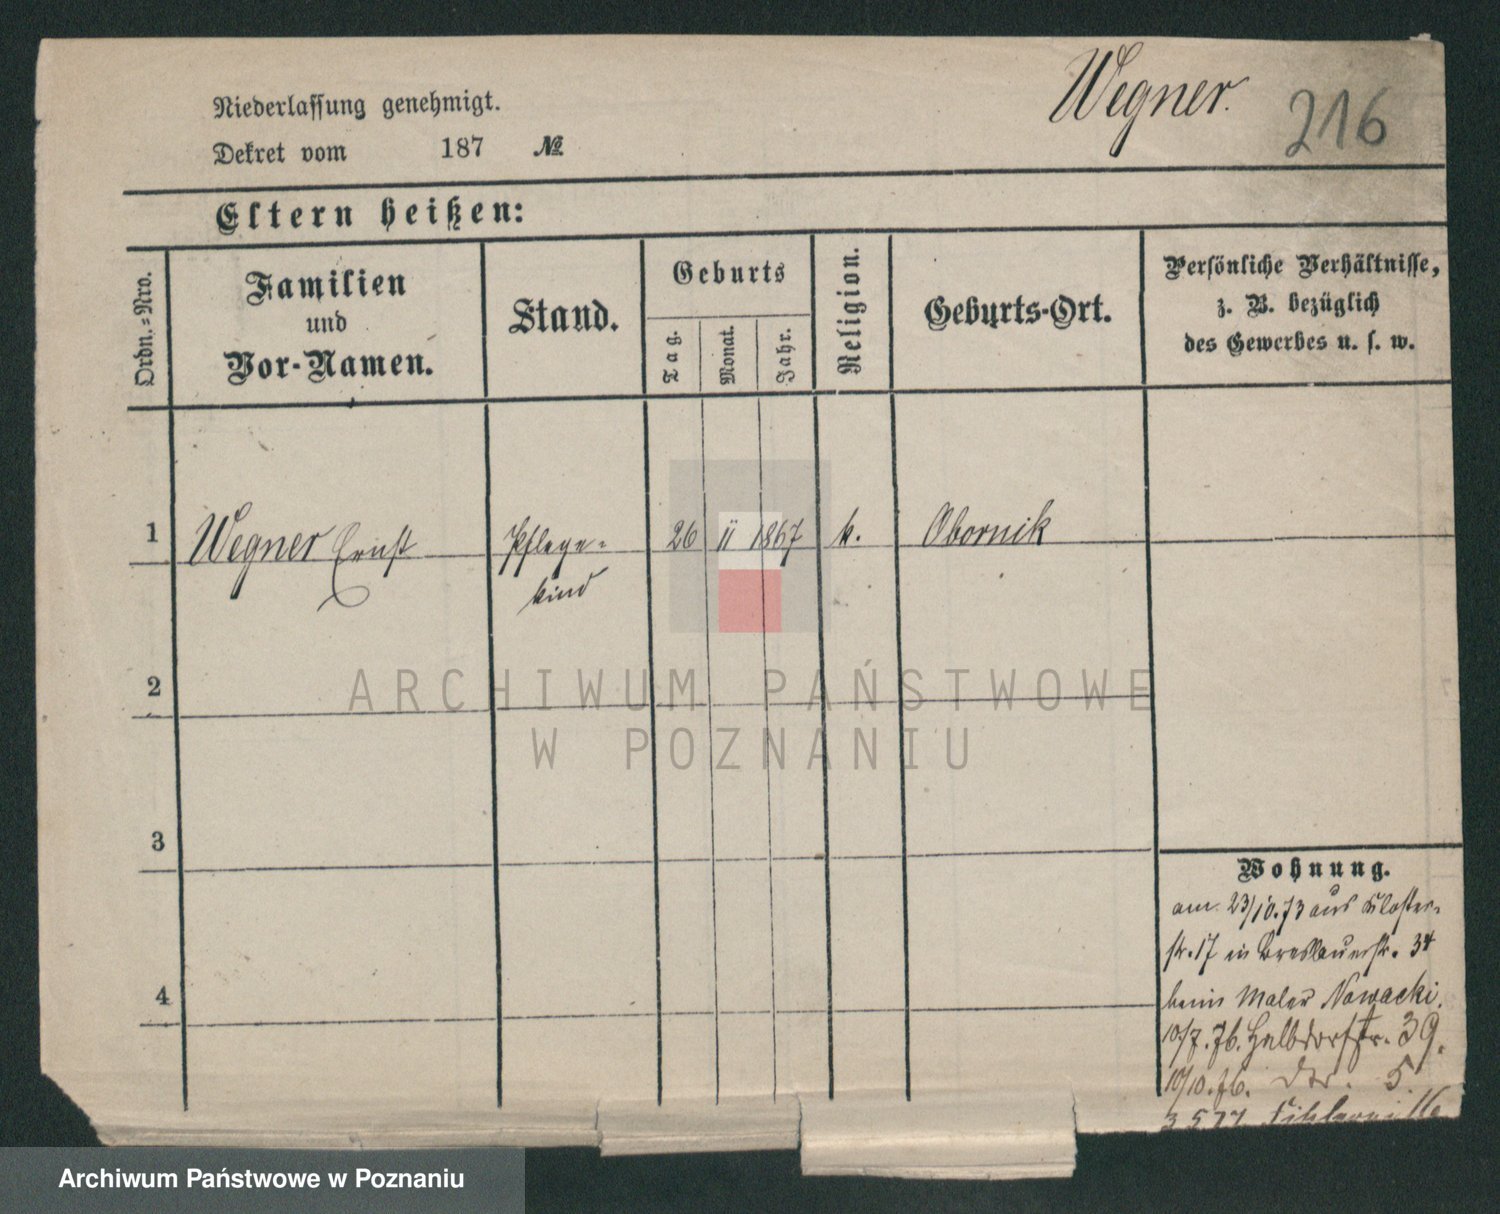 Niederlassung genehmigt.
Wegner.
216
Dekret vom 187 №
Eltern heißen:
Ordn.=Nro.
Familien
und
Vor-Namen.
Stand.
Geburts
Tag.
Monat.
Jahr.
Religion.
Geburts-Ort.
Persönliche Verhältnisse,
z. B. bezüglich
des Gewerbes u. s. w.
1 Wegner Ernst Pflege= 26 II 1867 k. Obornik
kind
2
3
4
ARCHIWUM PAŃSTWOWE
W POZNANIU
Wohnung.
am 23/10.73 aus Kloster=
str. 17 in Breslauerstr. 34
beim Maler Nowacki.
10/7.76. Halbdorfstr. 39.
10/10.76. 5.
3 5 77
Archiwum Państwowe w Poznaniu